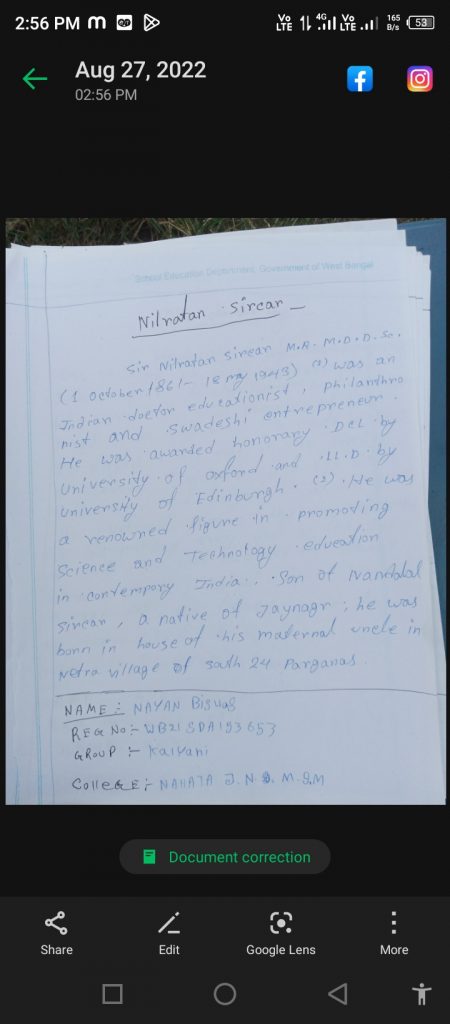 2:56 PM m
Vo LTE 4G Vo LTE 165 B/s 53
Aug 27, 2022
02:56 PM
School Education Department, Government of West Bengal
Nilratan Sircar
Sir Nilratan Sircar M.A. M.D. D. Sc.
(1 october 1861 - 18 may 1943) (1) was an
Indian doctor educationist, philanthro
nist and swadeshi entrepreneur.
He was awarded honorary DCL by
University of oxford and LL.D. by
University of Edinburgh. (2). He was
a renowned figure in promoting
Science and Technology education
in contempory India. Son of Nandalal
Sircar, a native of Jaynagr, he was
born in house of his maternal uncle in
Netra village of south 24 Parganas.
NAME :- NAYAN BISWAS
REG No :- WB21SDA153653
GROUP :- Kalyani
College :- NAHATA J. N. S. M. S. M
Document correction
Share
Edit
Google Lens
More